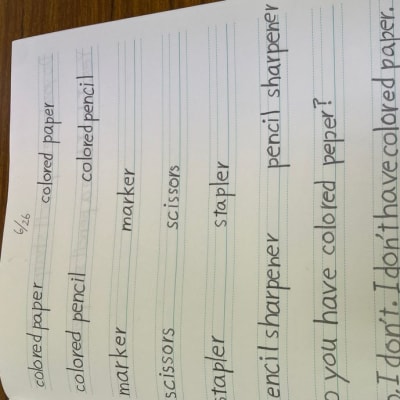 6/26
colored paper colored paper
colored pencil colored pencil
marker marker
scissors scissors
stapler stapler
encil sharpener pencil sharpener
o you have colored peper?
o, I don't. I don't have colored paper.